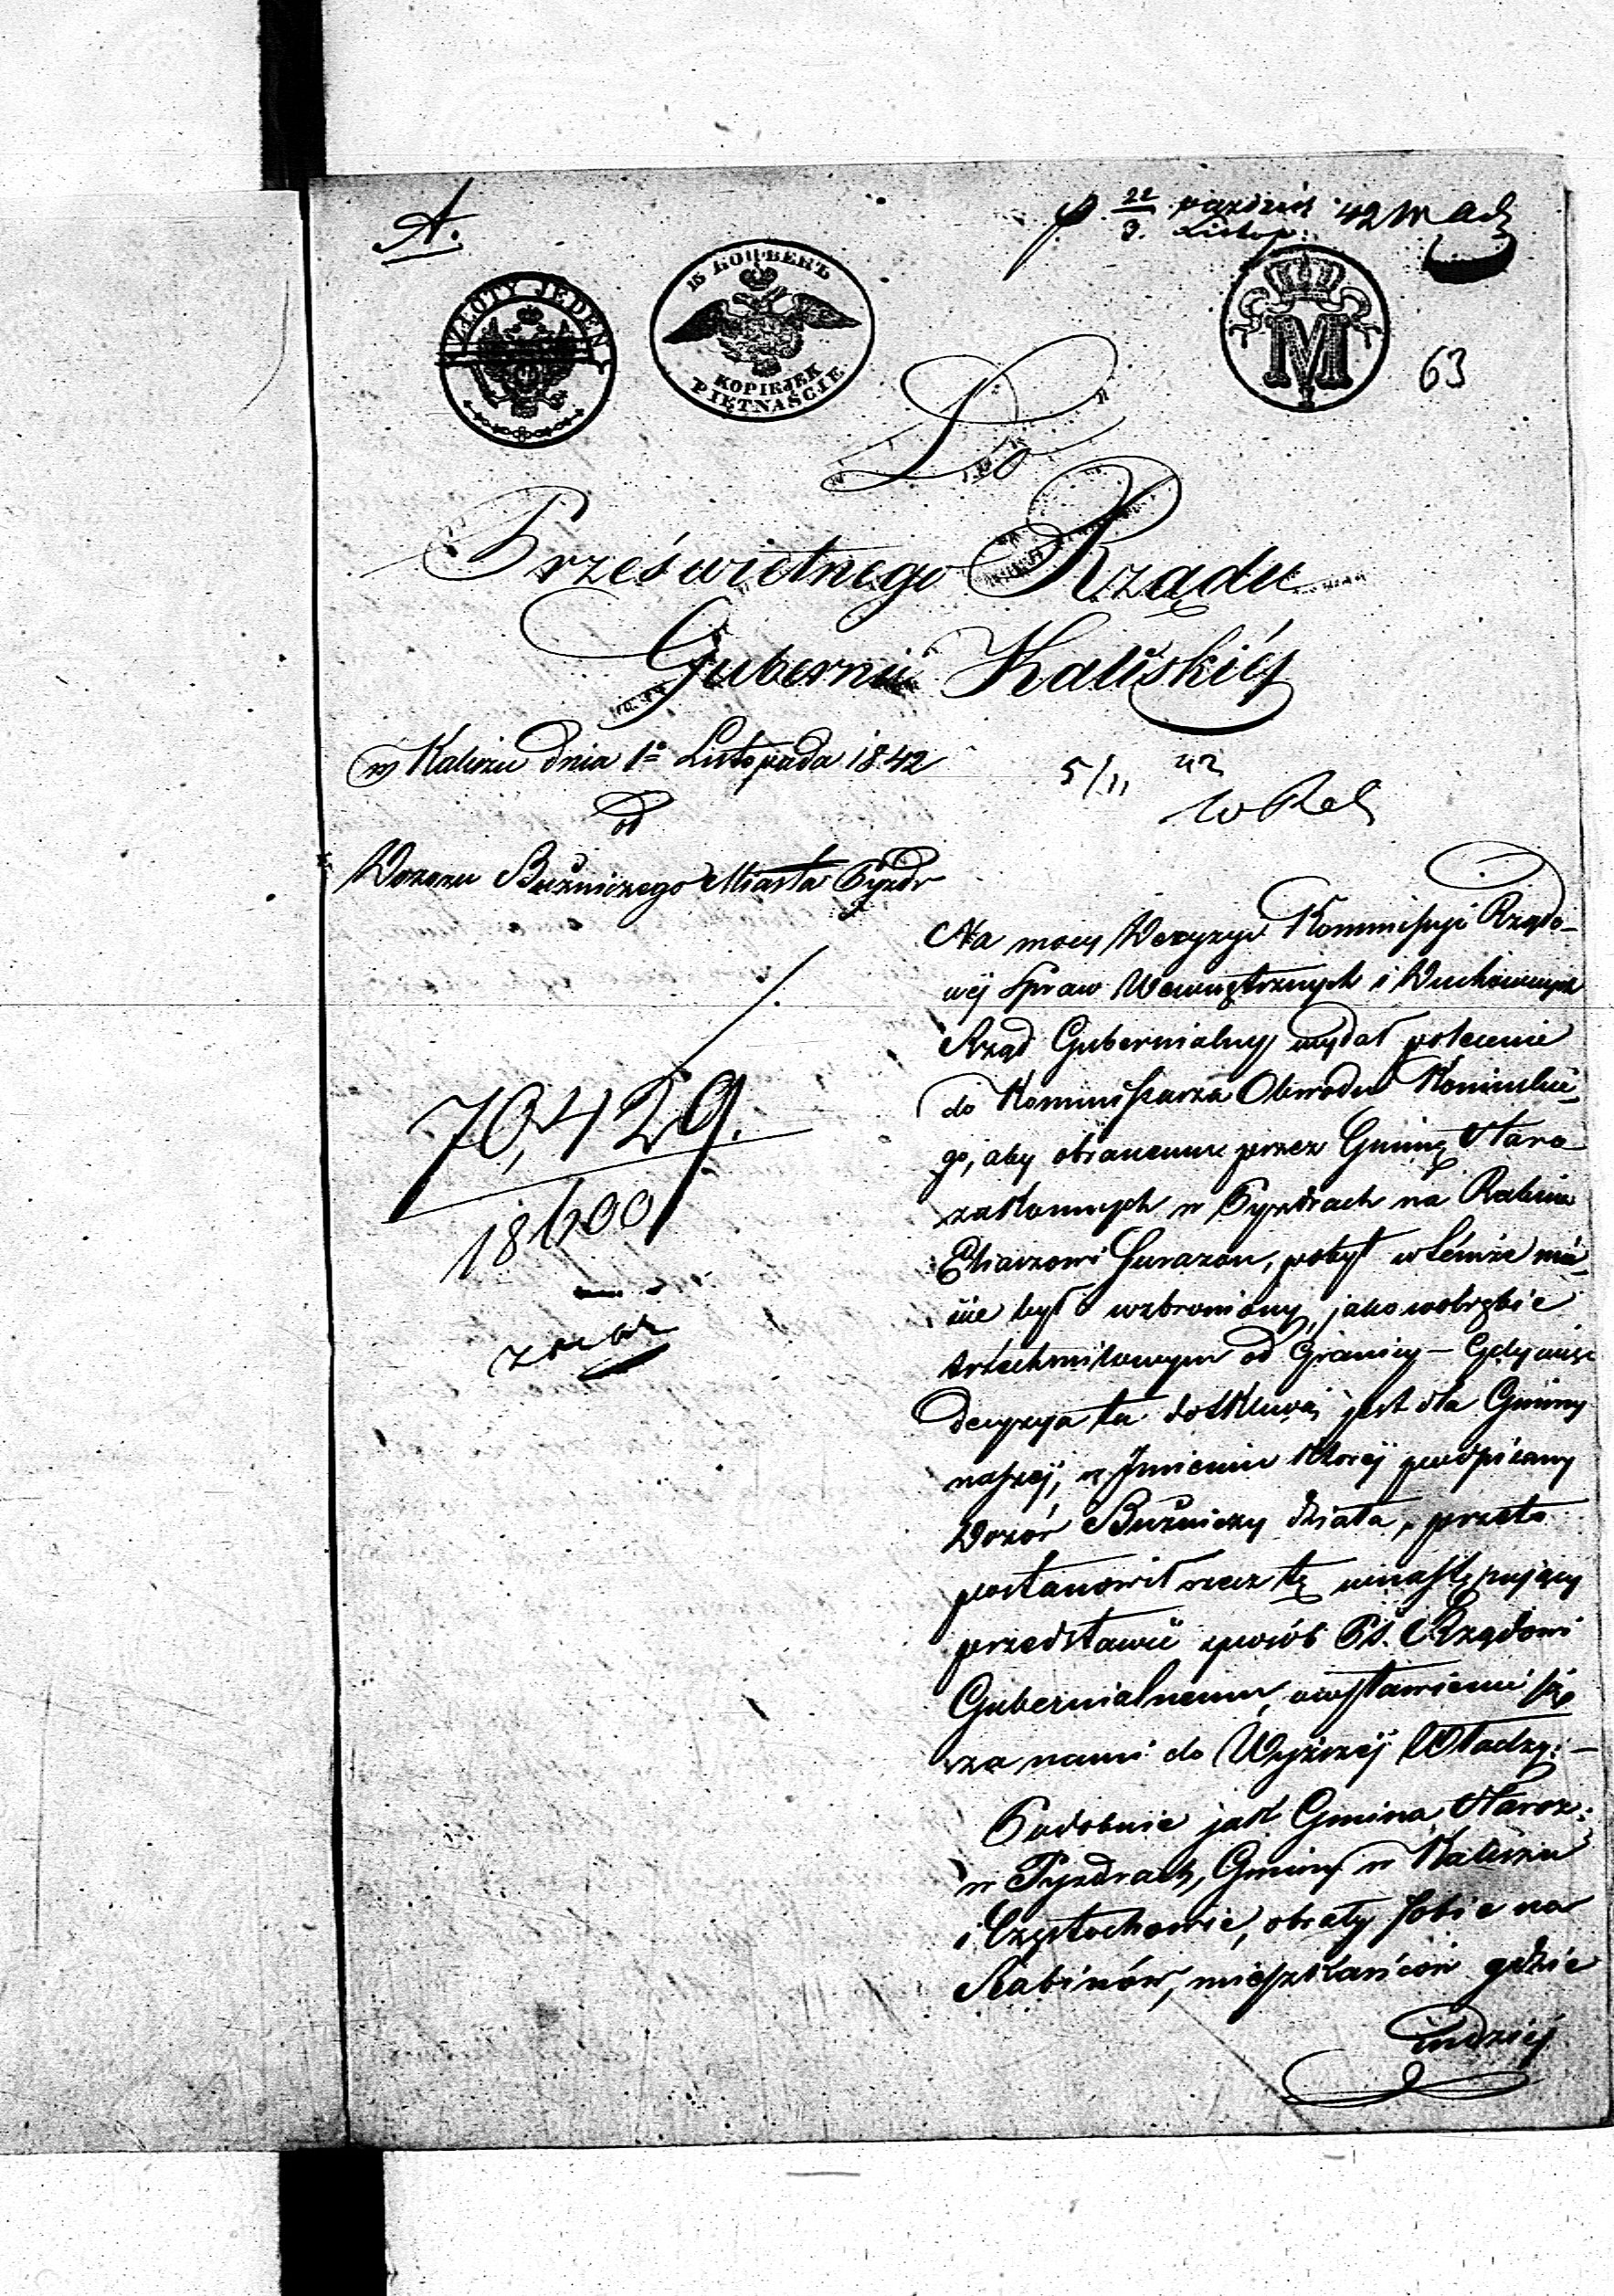 A.
22 paździer 42
3. Listop:
ZŁOTY JEDEN
15 КОПѢЕКЪ
KOPIEJEK
PIĘTNAŚCIE
M
63
Do
Prześwietnego Rządu
Gubernii Kaliskiéj
w Kaliszu dnia 1º Listopada 1842
5/11 42
od
Dozoru Bużniczego Miasta Pyzdr
Na mocy Decyzyi Kommissyi Rządo-
wéj Spraw Wewnętrznych i Duchownych
Rząd Gubernialny wydał polecenie
do Kommissarza Obwodu Konińskie-
go, aby obranemu przez Gminę Staro
zakonnych w Pyzdrach na Rabina
pobyt w témże mie-
ście był wzbroniony, jako w obrębie
trzechmilowym od Granicy – Gdy więc
decyzya ta dotkliwą jest dla Gminy
naszéj, w Imieniu któréj podpisany
Dozór Bużniczy działa, przeto
postanowił rzecz tę w następujący
przedstawić sposób Pś. Rządowi
Gubernialnemu, o wstawienie się
za nami do Wyższéj Władzy: –
Podobnie jak Gmina Staroz:
w Pyzdrach, Gminy w Kaliszu
i Częstochowie, obrały sobie na
Rabinów, mieszkańców gdzie
indziéj
70,429.
18600